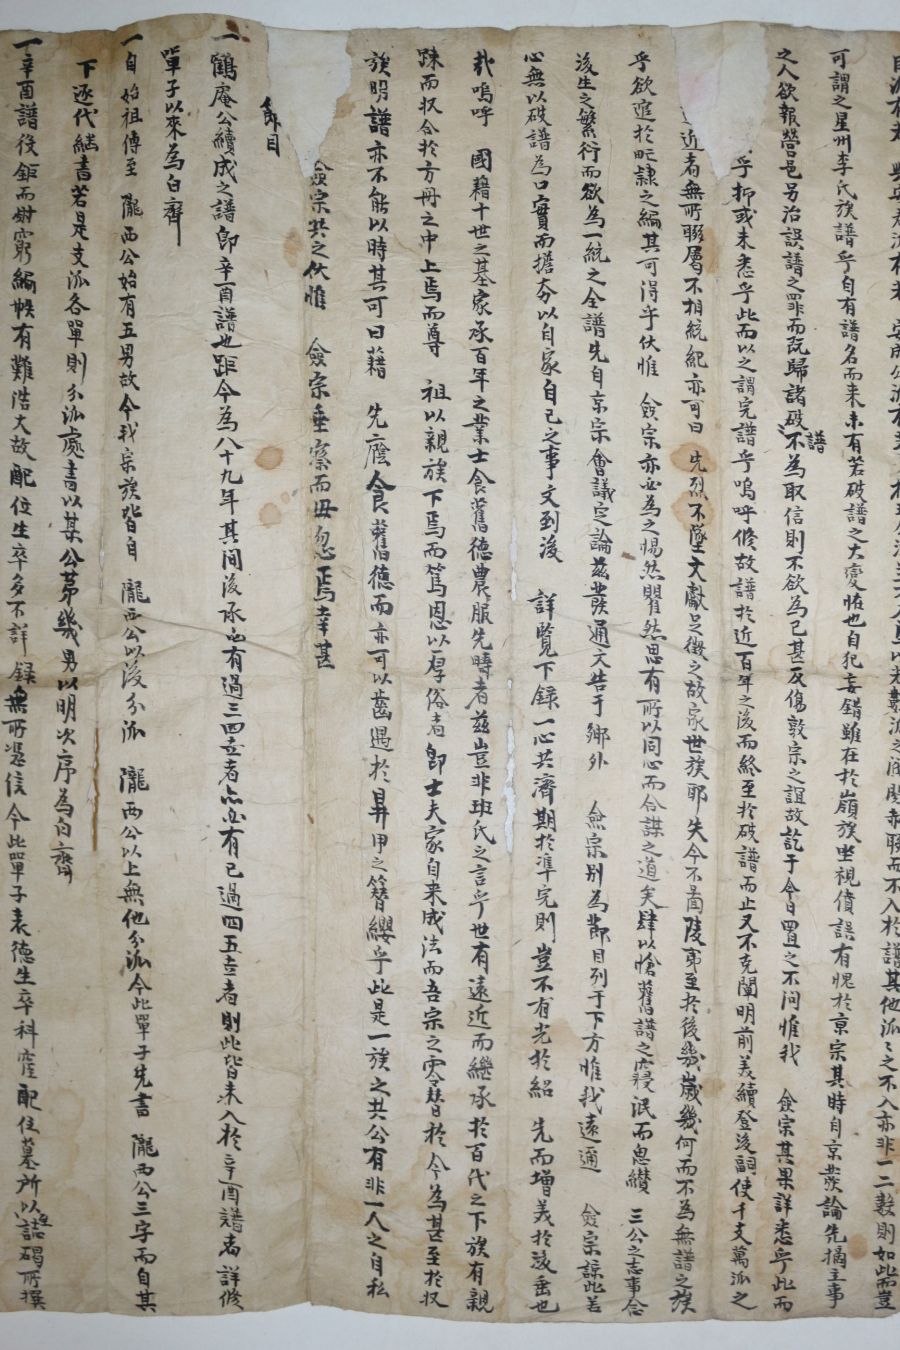 可謂之星州李氏族譜乎自有譜名而來未有若破譜之大變恠也自犯妄錯雖在於嶺族坐視僨誤有愧於京宗其時自京發論先摘主事
之人欲報營邑另治誤譜之罪而旣歸諸破譜不為取信則不欲為已甚反傷敦宗之誼故訖于今日置之不問惟我 僉宗其果詳悉乎此而
乎抑或未悉乎此而以之謂完譜乎嗚呼修故譜於近百年之後而終至於破譜而止又不克闡明前美續登後嗣使千支萬派之
近者無所聯屬不相統紀亦可曰 先烈不墜文獻足徵之故家世族耶失今不啚陵夷至於後幾歲幾何而不為無譜之族
乎欲進於甿隷之編其可得乎伏惟 僉宗亦必為之惕然瞿然思有所以同心而合謀之道矣肆以愴舊譜之寢泯而思纘 三公之志事合
後生之繁衍而欲為一統之全譜先自京宗會議定論玆發通文告于鄕外 僉宗別為節目列于下方惟我遠邇 僉宗諒此苦
心無以破譜為口實而擔夯以自家自己之事文到後 詳覽下錄一心共濟期於準完則豈不有光於紹 先而增美於後垂也
㢤嗚呼 國籍十世之基家承百年之業士食舊德農服先疇者玆豈非班氏之言乎世有遠近而繼承於百代之下族有親
踈而収合於方冊之中上焉而尊 祖以親族下焉而篤恩以厚俗者卽士夫家自来成法而吾宗之零替於今為甚至於収
族明譜亦不能以時其可曰藉 先廕食舊德而亦可以齒遇於昇甲之簪纓乎此是一族之共公有非一人之自私
僉宗共之伏惟 僉宗垂察而毋忽焉幸甚
節目
一鶴庵公續成之譜卽辛酉譜也距今為八十九年其間後承必有過三四立者亦必有已過四五立者則此皆未入於辛酉譜者詳修
單子以来為白齊
一自 始祖傳至 隴西公始有五男故今我宗族皆自 隴西公以後分派 隴西公以上無他分派今此單子先書 隴西公三字而自其
下逐代繼書若是支派各單則分派處書以某公第幾男以明次序為白齊
一辛酉譜役鉅而財窮編帙有難浩大故配位生卒多不詳錄無所憑信今此單子表德生卒科宦配位墓所以至誌碣所撰